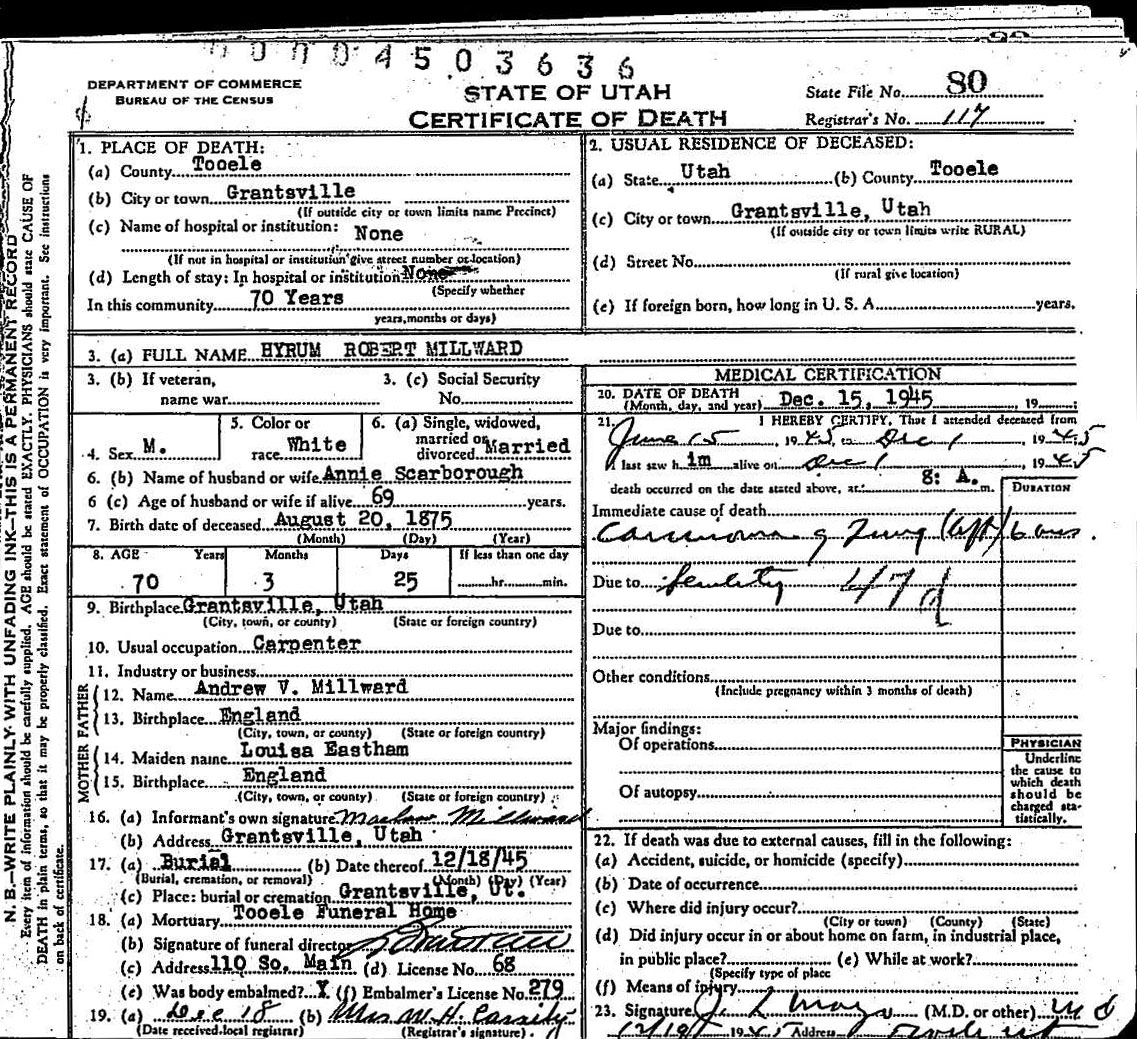 0 0 0 4 5 0 3 6 3 6
DEPARTMENT OF COMMERCE
BUREAU OF THE CENSUS
STATE OF UTAH
CERTIFICATE OF DEATH
State File No. 80
Registrar's No. 117
N. B.—WRITE PLAINLY WITH UNFADING INK—THIS IS A PERMANENT RECORD
Every item of information should be carefully supplied. AGE should be stated EXACTLY. PHYSICIANS should state CAUSE OF
DEATH in plain terms, so that it may be properly classified. Exact statement of OCCUPATION is very important. See instructions
on back of certificate.
1. PLACE OF DEATH:
(a) County Tooele
(b) City or town Grantsville
(If outside city or town limits name Precinct)
(c) Name of hospital or institution: None
(If not in hospital or institution give street number or location)
(d) Length of stay: In hospital or institution None
(Specify whether
In this community 70 Years
years, months or days)
2. USUAL RESIDENCE OF DECEASED:
(a) State Utah (b) County Tooele
(c) City or town Grantsville, Utah
(If outside city or town limits write RURAL)
(d) Street No.
(If rural give location)
(e) If foreign born, how long in U. S. A. years.
3. (a) FULL NAME HYRUM ROBERT MILLWARD
3. (b) If veteran, 3. (c) Social Security
name war No.
4. Sex M.
5. Color or
race White
6. (a) Single, widowed,
married or
divorced Married
6. (b) Name of husband or wife Annie Scarborough
6 (c) Age of husband or wife if alive 69 years.
7. Birth date of deceased August 20, 1875
(Month) (Day) (Year)
8. AGE Years Months Days If less than one day
70 3 25 hr. min.
9. Birthplace Grantsville, Utah
(City, town, or county) (State or foreign country)
10. Usual occupation Carpenter
11. Industry or business
FATHER
12. Name Andrew V. Millward
13. Birthplace England
(City, town, or county) (State or foreign country)
MOTHER
14. Maiden name Louisa Eastham
15. Birthplace England
(City, town, or county) (State or foreign country)
16. (a) Informant's own signature Millward
(b) Address Grantsville, Utah
17. (a) Burial (b) Date thereof 12/18/45
(Burial, cremation, or removal) (Month) (Day) (Year)
(c) Place: burial or cremation Grantsville, Ut.
18. (a) Mortuary Tooele Funeral Home
(b) Signature of funeral director
(c) Address 110 So. Main (d) License No. 68
(e) Was body embalmed? X (f) Embalmer's License No. 279
19. (a) Dec 18 (b) Mrs M. H. Cassity
(Date received local registrar) (Registrar's signature)
MEDICAL CERTIFICATION
20. DATE OF DEATH
(Month, day, and year) Dec. 15, 1945, 19 ;
21. I HEREBY CERTIFY, That I attended deceased from
June 15, 1945 to Dec 1, 1945
I last saw h im alive on Dec 1, 1945
death occurred on the date stated above, at 8: A. m.
DURATION
Immediate cause of death
Carcinoma of Lung (left) 6 mos.
Due to Senility 47 d
Due to
Other conditions
(Include pregnancy within 3 months of death)
Major findings:
Of operations
Of autopsy
PHYSICIAN
Underline
the cause to
which death
should be
charged sta-
tistically.
22. If death was due to external causes, fill in the following:
(a) Accident, suicide, or homicide (specify)
(b) Date of occurrence
(c) Where did injury occur?
(City or town) (County) (State)
(d) Did injury occur in or about home on farm, in industrial place,
in public place? (e) While at work?
(Specify type of place
(f) Means of injury
23. Signature J. L. (M.D. or other) M d
1945 Address